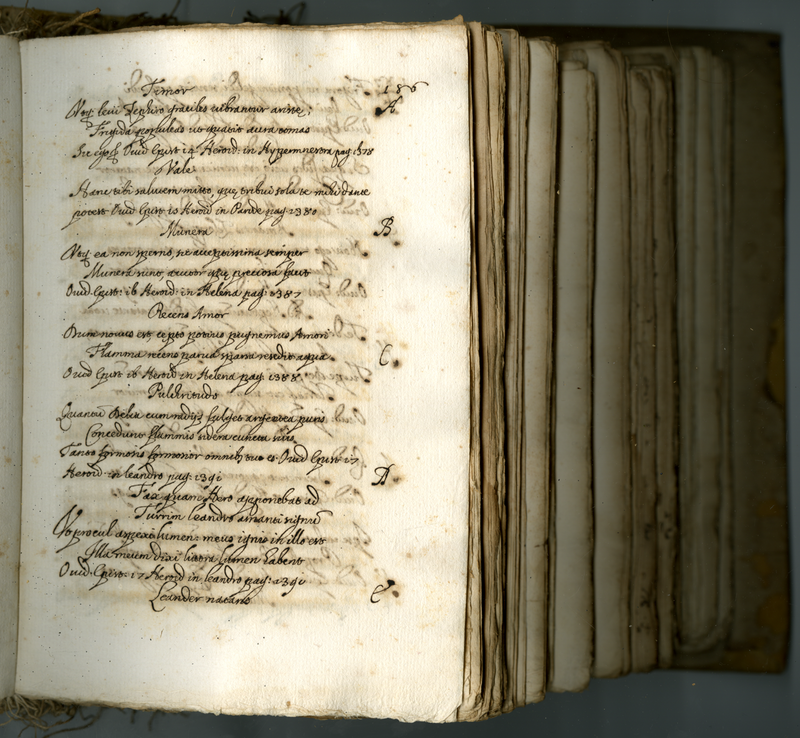 Timor 186
Utq; leui Zephiro graciles uibrantur ariste; A
Frigida populeas ut quatit aura comas
Sic ego &c Ouid Epist 14 Heroid: in Hypermnestra pag 1378
Vale
Hanc tibi salutem mitto, que tribui sola te mihi dante
potest Ouid Epist 15 Heroid in Paride pag 1380
Munera B
Utq; ea non sperno, sic acceptissima semper
Munera sunt, auctor que preciosa facit
Ouid Epist: 16 Heroid: in Helena pag: 1387
Recens Amor
Dum nouus est, cepto potius pugnemus Amori
Flamma recens parua sparsa resedit aqua C
Ouid Epist 16 Heroid in Helena pag: 1388
Pulchritudo
Quantũ Delia cum radijs fulget argentea puris
Concedunt flammis sidera cuncta suis
Tanto formosis formosior omnibus tu es. Ouid Epist 17
Heroid: in leandro pag: 1391 D
Fax quam Hero apponebat ad
Turrim leandro amanti signũ
Ut procul aspexi lumen: meus ignis in illo est
Illa meum dixi littora lumen habent
Ouid. Epist: 17 Heroid in leandro pag: 1391
Leander natans E